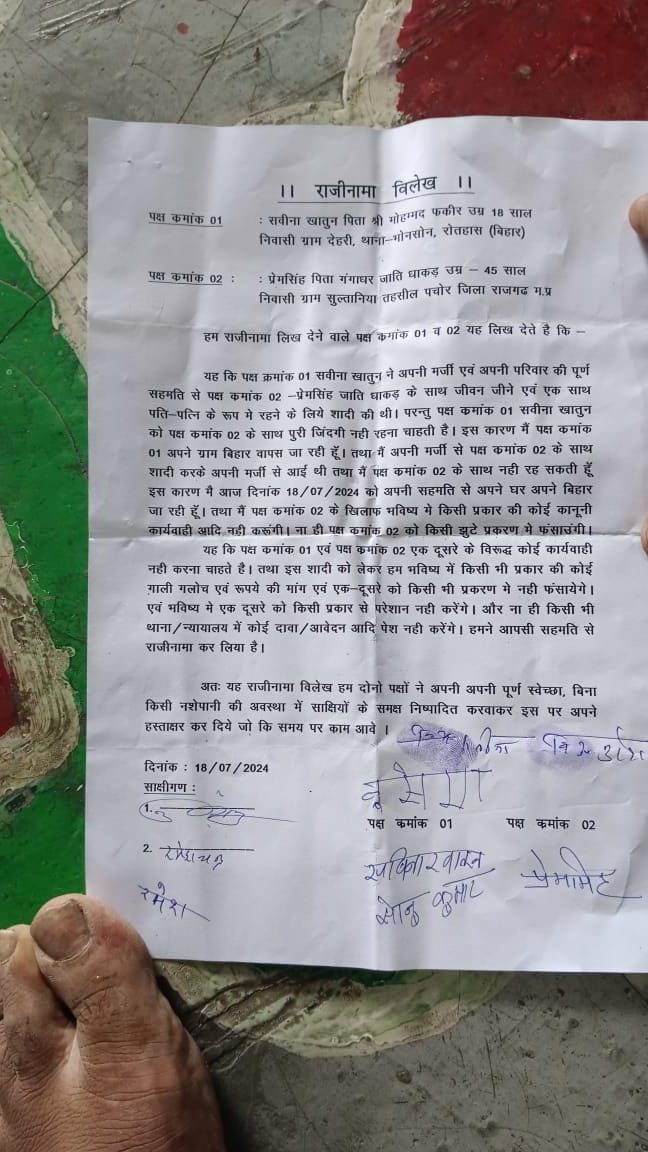 ।। राजीनामा विलेख ।।
पक्ष कमांक 01 : सवीना खातुन पिता श्री मोहम्मद फकीर उम्र 18 साल
निवासी ग्राम देहरी, थाना–भोनसोन, रोतहास (बिहार)
पक्ष कमांक 02 : : प्रेमसिंह पिता गंगाधर जाति धाकड़ उम्र – 45 साल
निवासी ग्राम सुल्तानिया तहसील पचोर जिला राजगढ म.प्र
हम राजीनामा लिख देने वाले पक्ष कमांक 01 व 02 यह लिख देते है कि –
यह कि पक्ष क्रमांक 01 सवीना खातुन ने अपनी मर्जी एवं अपनी परिवार की पूर्ण
सहमति से पक्ष कमांक 02 –प्रेमसिंह जाति धाकड़ के साथ जीवन जीने एवं एक साथ
पति–पत्नि के रूप मे रहने के लिये शादी की थी। परन्तु पक्ष कमांक 01 सवीना खातुन
को पक्ष कमांक 02 के साथ पुरी जिंदगी नही रहना चाहती है। इस कारण मैं पक्ष कमांक
01 अपने ग्राम बिहार वापस जा रही हूँ। तथा मैं अपनी मर्जी से पक्ष कमांक 02 के साथ
शादी करके अपनी मर्जी से आई थी तथा मैं पक्ष कमांक 02 के साथ नही रह सकती हूँ
इस कारण मै आज दिनांक 18/07/2024 को अपनी सहमति से अपने घर अपने बिहार
जा रही हूँ। तथा मैं पक्ष कमांक 02 के खिलाफ भविष्य मे किसी प्रकार की कोई कानूनी
कार्यवाही आदि नही करूंगी। ना ही पक्ष कमांक 02 को किसी झुटे प्रकरण मे फंसाउंगी।
यह कि पक्ष कमांक 01 एवं पक्ष कमांक 02 एक दूसरे के विरूद्ध कोई कार्यवाही
नही करना चाहते है। तथा इस शादी को लेकर हम भविष्य में किसी भी प्रकार की कोई
गाली गलोच एवं रूपये की मांग एवं एक–दूसरे को किसी भी प्रकरण मे नही फसायेगे।
एवं भविष्य मे एक दूसरे को किसी प्रकार से परेशान नही करेंगे। और ना ही किसी भी
थाना/न्यायालय में कोई दावा/आवेदन आदि पेश नही करेंगे। हमने आपसी सहमति से
राजीनामा कर लिया है।
अतः यह राजीनामा विलेख हम दोनो पक्षों ने अपनी अपनी पूर्ण स्वेच्छा, बिना
किसी नशेपानी की अवस्था में साक्षियों के समक्ष निष्पादित करवाकर इस पर अपने
हस्ताक्षर कर दिये जो कि समय पर काम आवे ।
दिनांक : 18/07/2024
साक्षीगण :
1.
पक्ष कमांक 01 पक्ष कमांक 02
2. रमेशचन्द्र
रमेश
सोनु कुमार
प्रेमसिंह